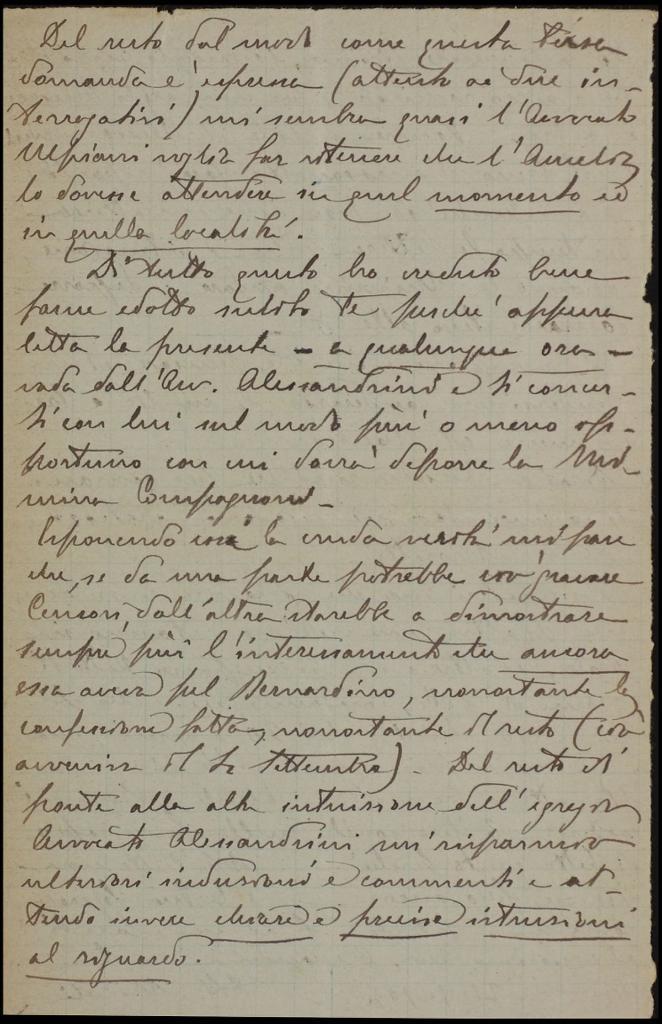 Del resto dal modo come questa terza
domanda è espressa (attento ai due in-
terrogativi) mi sembra quasi l'Avvocato
voglia far ritenere che l'Amelia
lo dovesse attendere in quel momento ed
in quella località.
Di tutto questo ho creduto bene
farne edotto subito te perché appena
letta la presente - a qualunque ora -
vada dall'Avv. Alessandrini e ti concer-
ti con lui sul modo più o meno op-
portuno con cui dovrà deporre la
mina Compagnoni -
Esponendo così la cruda verità mi pare
che, se da una parte potrebbe
Censori, dall'altra starebbe a dimostrare
sempre più l'interessamento che ancora
essa aveva pel Bernardino, nonostante la
confessione fatta, nonostante il resto (ciò
avveniva il Settembre). Del resto di
fronte alla alta intuizione dell'egregio
Avvocato Alessandrini mi risparmio
ulteriori induzioni e commenti e at-
tendo invece chiare e precise istruzioni
al riguardo.